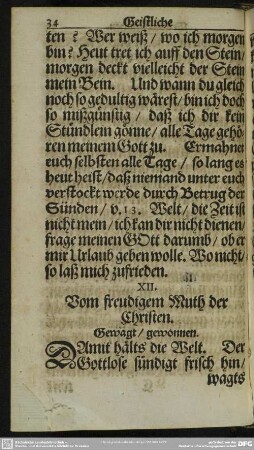 34 Geistliche
ten? Wer weiß/ wo ich morgen
bin? Heut tret ich auff den Stein/
morgen deckt vielleicht der Stein
mein Bein. Und wann du gleich
noch so gedultig wärest/ bin ich doch
so mißgünstig/ daß ich dir kein
Stündlein gönne/ alle Tage gehö-
ren meinem Gott zu. Ermahnet
euch selbsten alle Tage/ so lang es
heut heist/ daß niemand unter euch
verstockt werde durch Betrug der
Sünden/ v. 13. Welt/ die Zeit ist
nicht mein/ ich kan dir nicht dienen/
frage meinen GOtt darumb/ ob er
mir Urlaub geben wolle. Wo nicht/
so laß mich zufrieden.
XII.
Vom freudigem Muth der
Christen.
Gewagt/ gewonnen.
DAmit hälts die Welt. Der
Gottlose sündigt frisch hin/
wagts